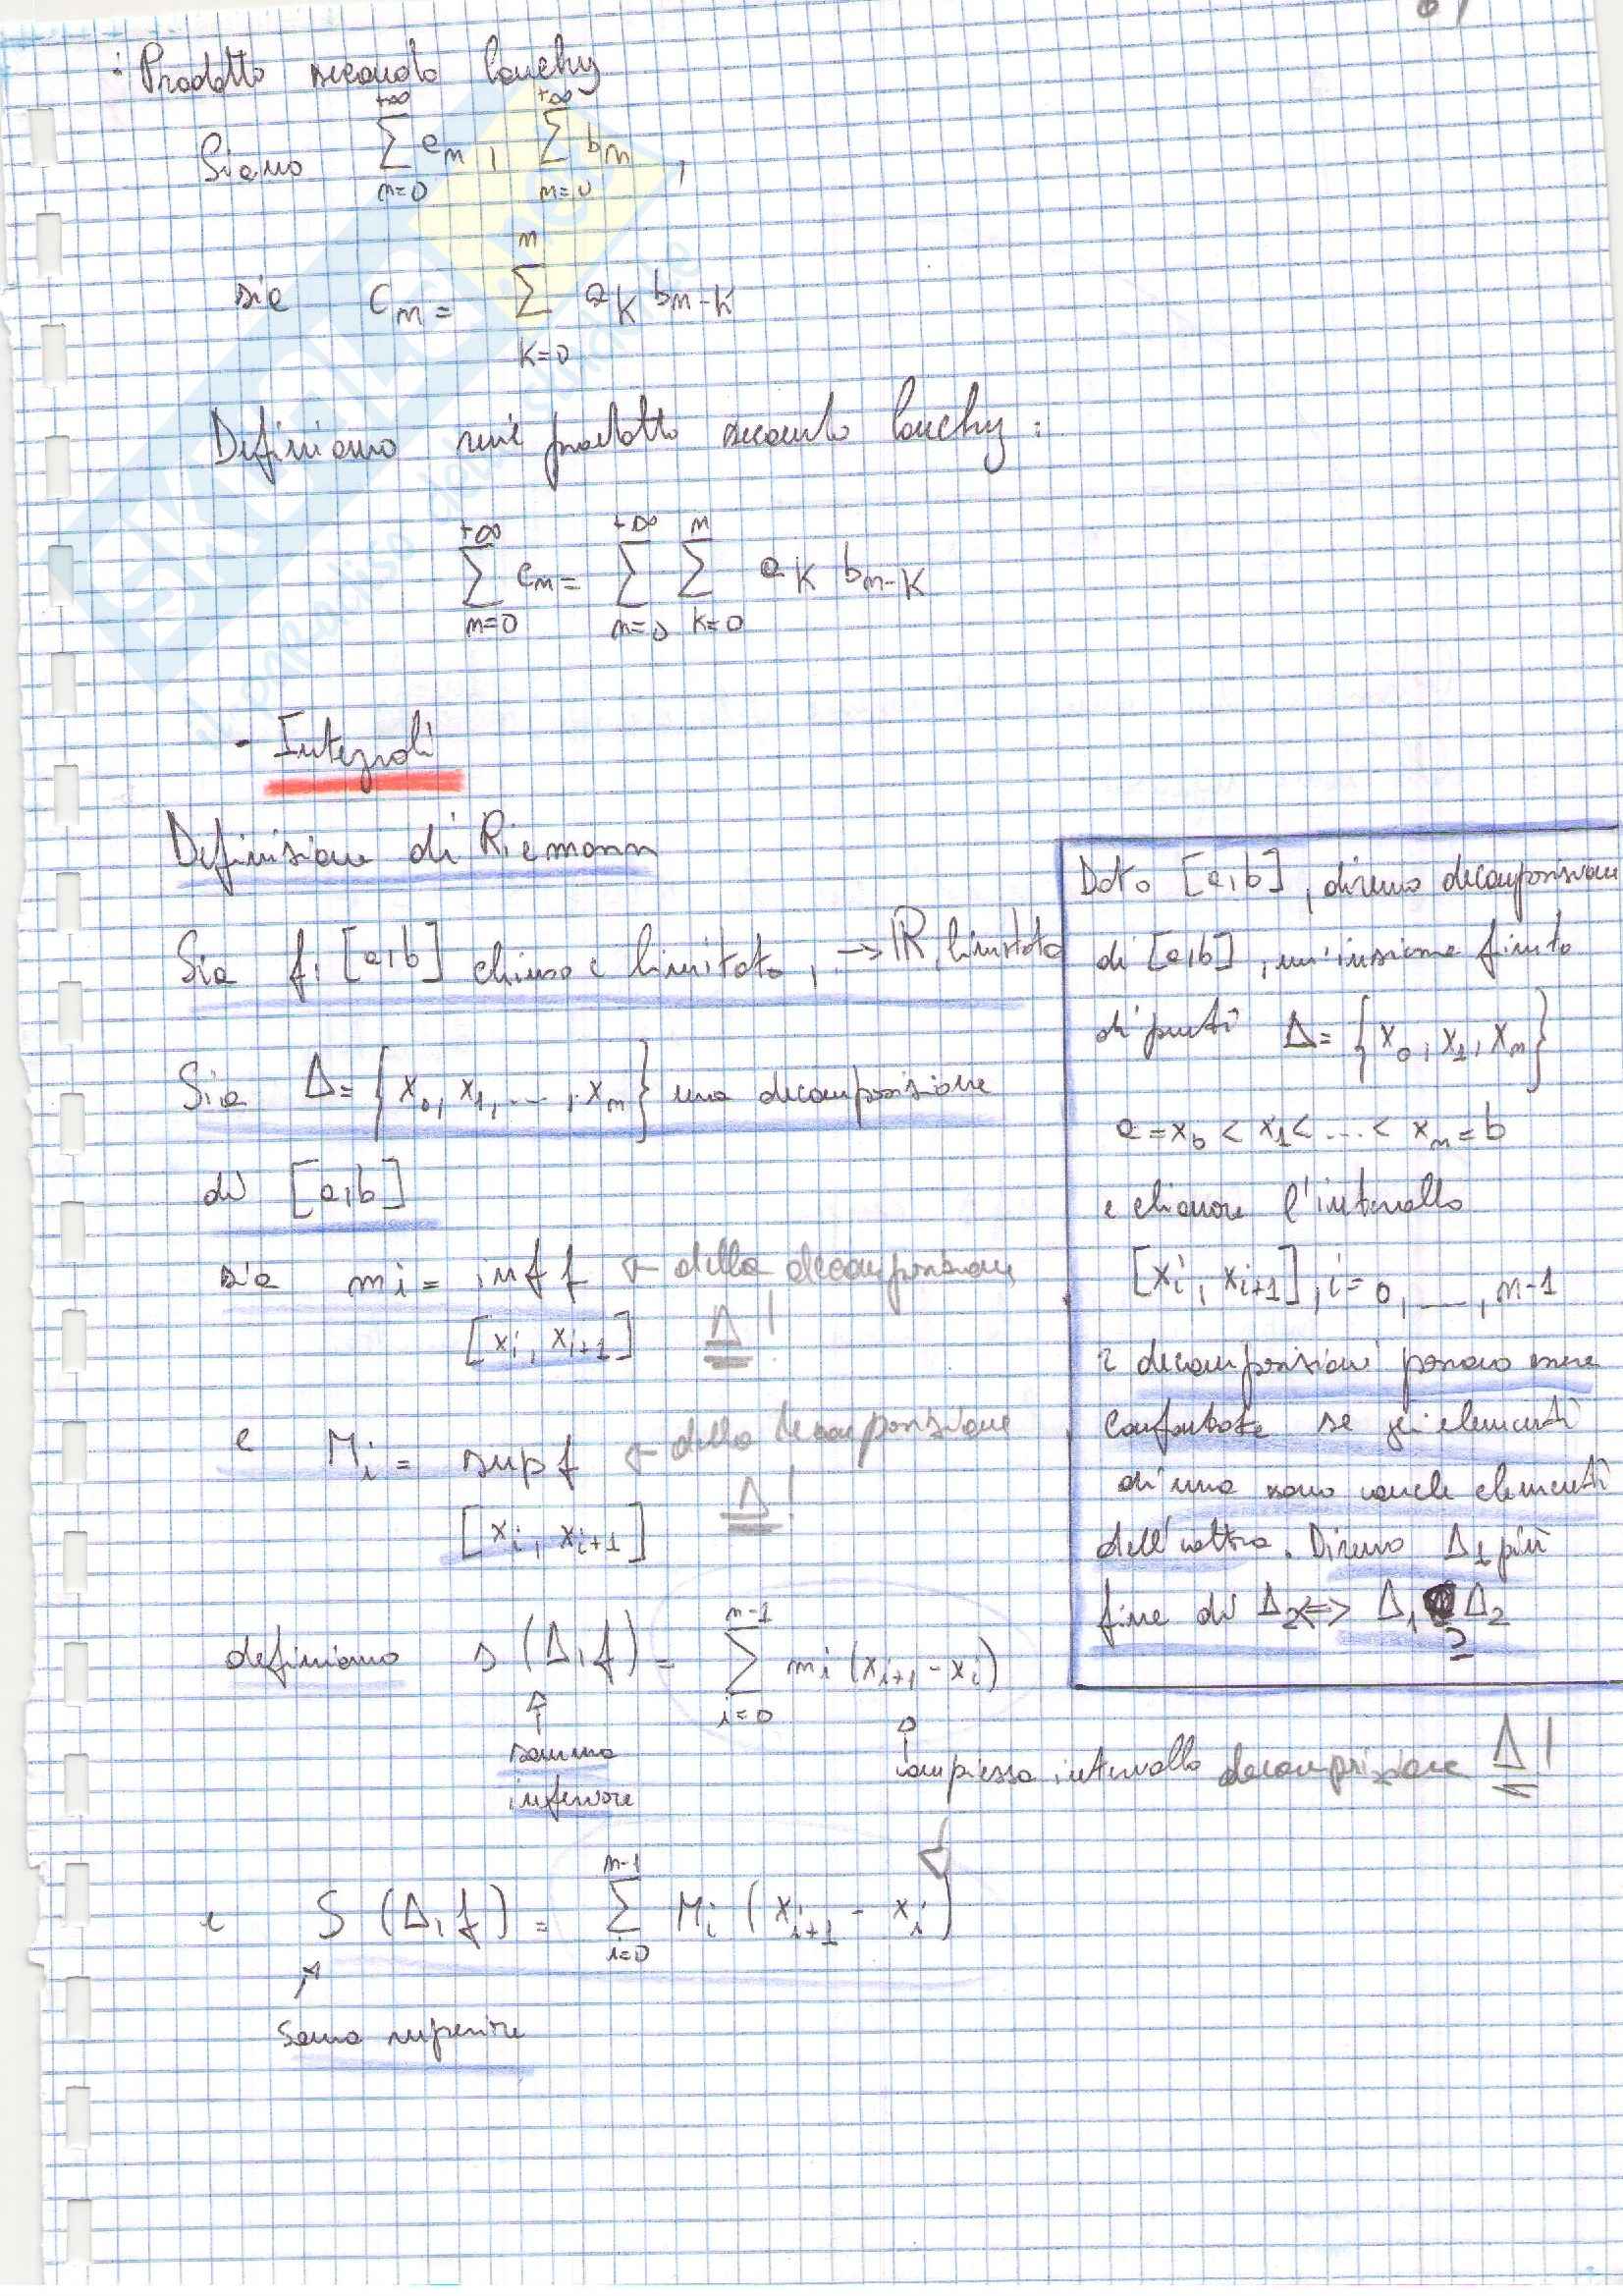 - Prodotto secondo Cauchy
Siano +∞ ∑ n=0 an, +∞ ∑ n=0 bn,
sia Cn = n ∑ k=0 ak bn-k
Definiamo serie prodotto secondo Cauchy:
+∞ ∑ n=0 cn = +∞ ∑ n=0 n ∑ k=0 ak bn-k
- Integrali
Definizione di Riemann
Sia f, [a,b] chiuso e limitato, → ℝ, limitata
Sia Δ = {x0, x1, ..., xn} una decomposizione
di [a,b]
sia mi = inf f ← della decomposizione
[xi, xi+1] Δ!
e Mi = sup f ← della decomposizione
[xi, xi+1] Δ!
definiamo s (Δ, f) = n-1 ∑ i=0 mi (xi+1 - xi)
somma
inferiore
ampiezza intervallo decomposizione Δ!
e S (Δ, f) = n-1 ∑ i=0 Mi (xi+1 - xi)
Soma superiore
Dato [a,b], diremo decomposizione
di [a,b], un'insieme finito
di punti Δ = {x0, x1, xn}
a = x0 < x1 < ... < xn = b
e chiamare l'intervallo
[xi, xi+1], i = 0, ..., n-1
2 decomposizioni possono essere
confrontate se gli elementi
di una sono anche elementi
dell'altra. Diremo Δ1 più
fine di Δ2 <=> Δ1 ⊇ Δ2
SKUOLA
il paradiso dello studente